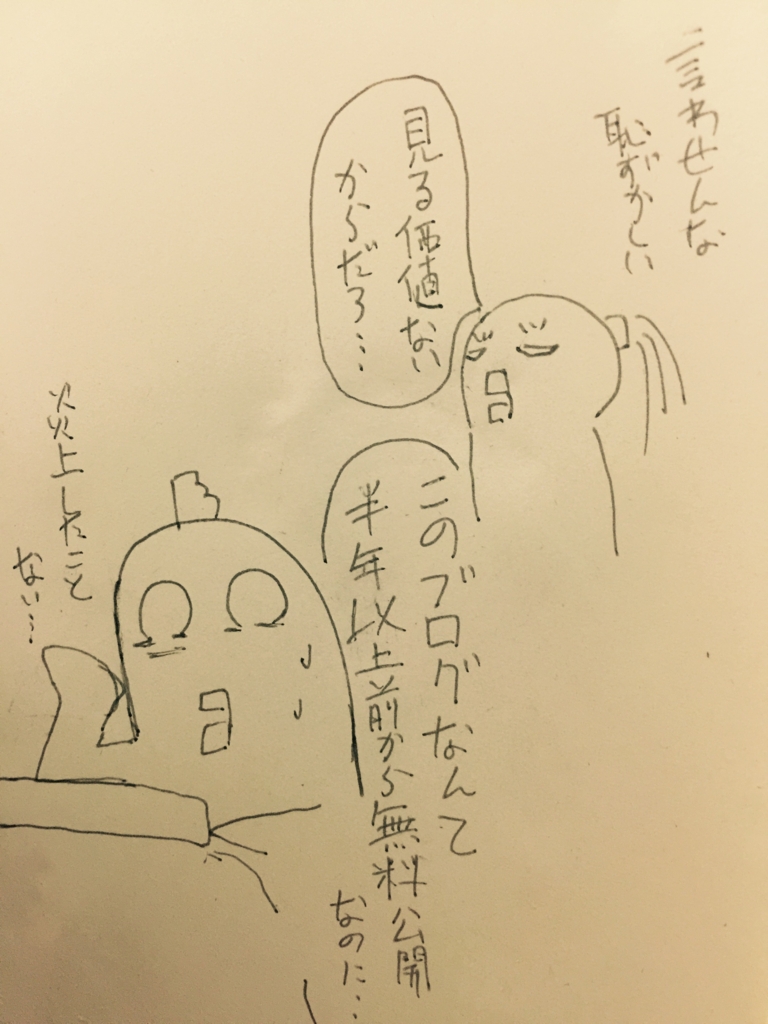 言わせんな
恥ずかしい
見る価値ない
からだろ…
このブログなんて
半年以上前から無料公開
なのに…
炎上したこと
ない…